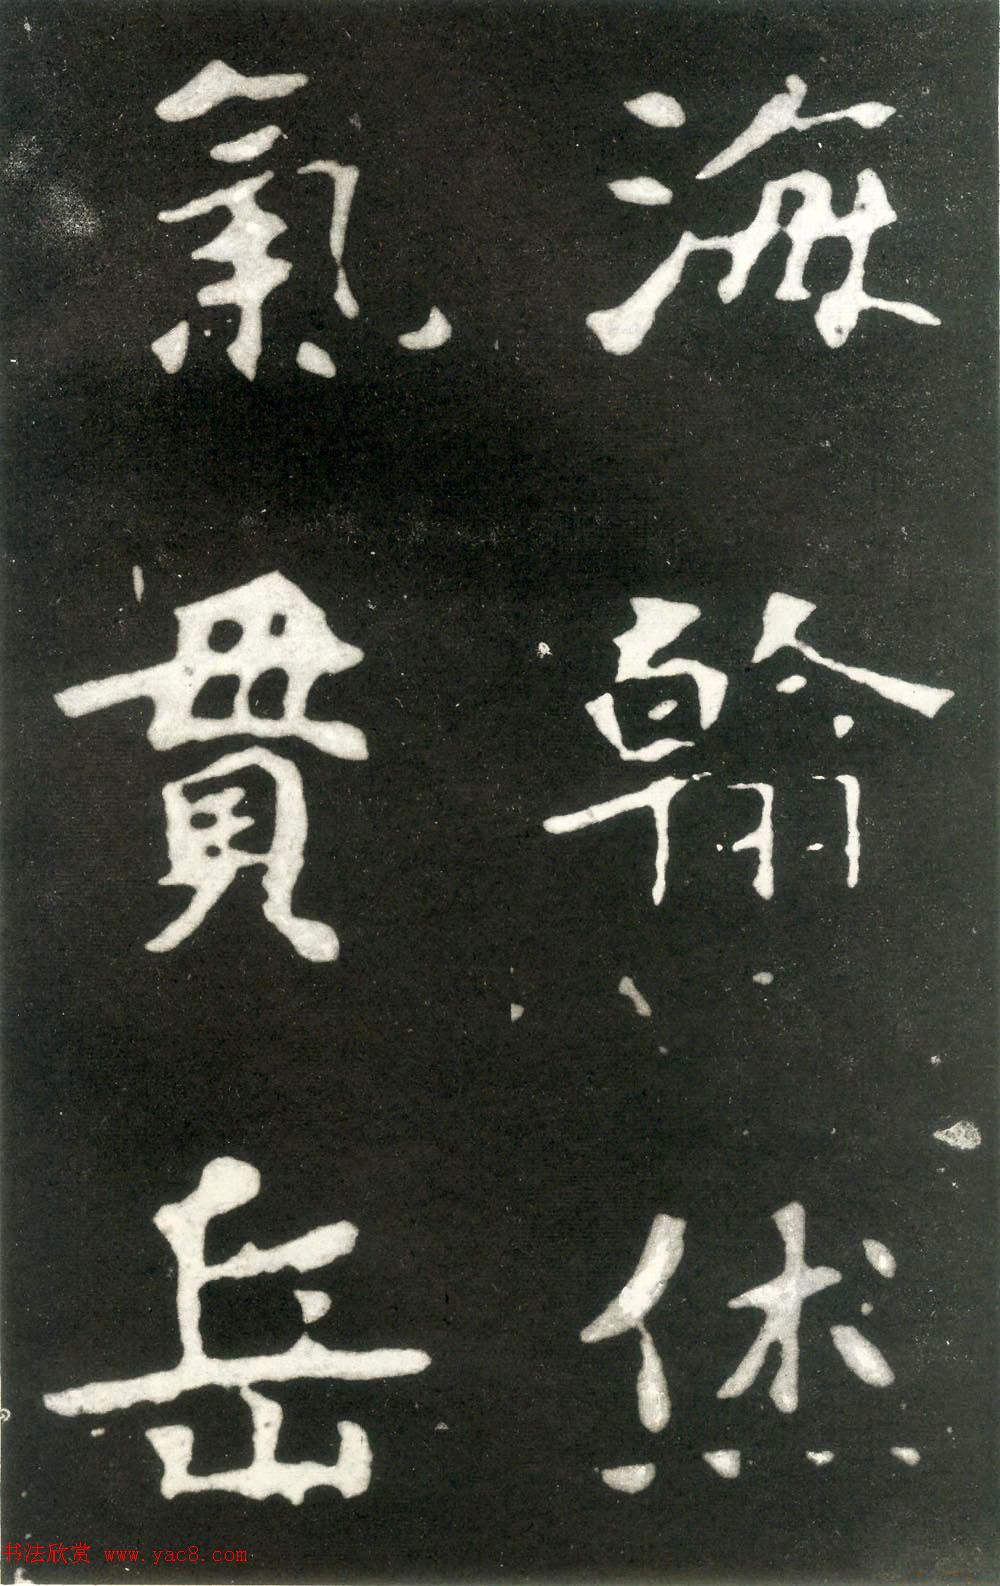 海翰
氣貫岳
书法欣赏 www.yac8.com